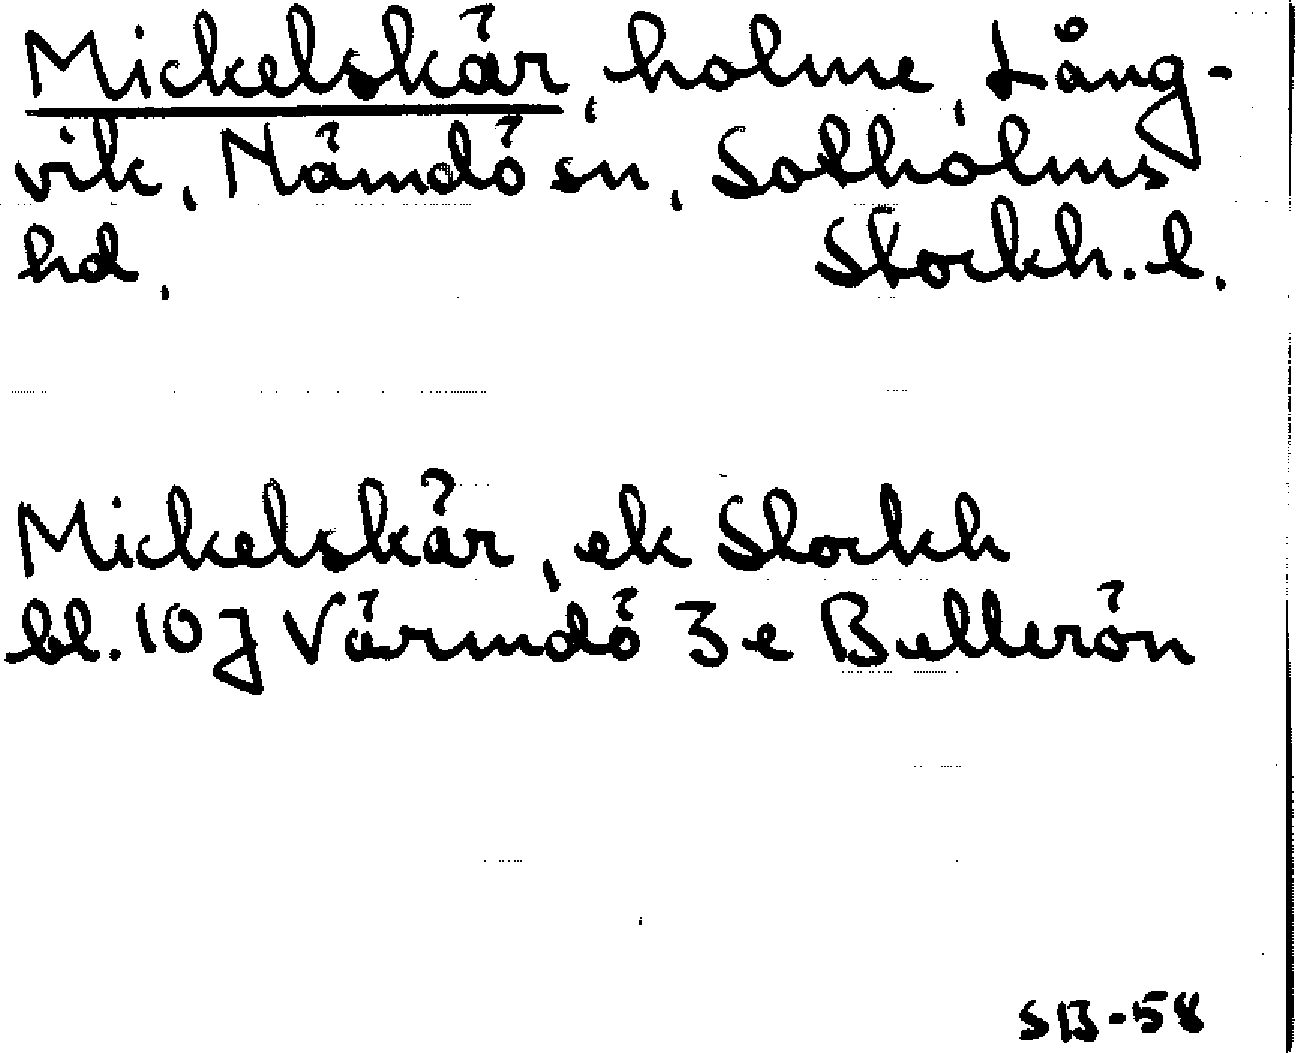 Mickelskär, holme, Lång-
vik, Nämdö sn, Sotholms
hd, Stockh. l.
Mickelskär, ek Stockh
bl. 10J Värmdö 3e Bullerön
SB-58